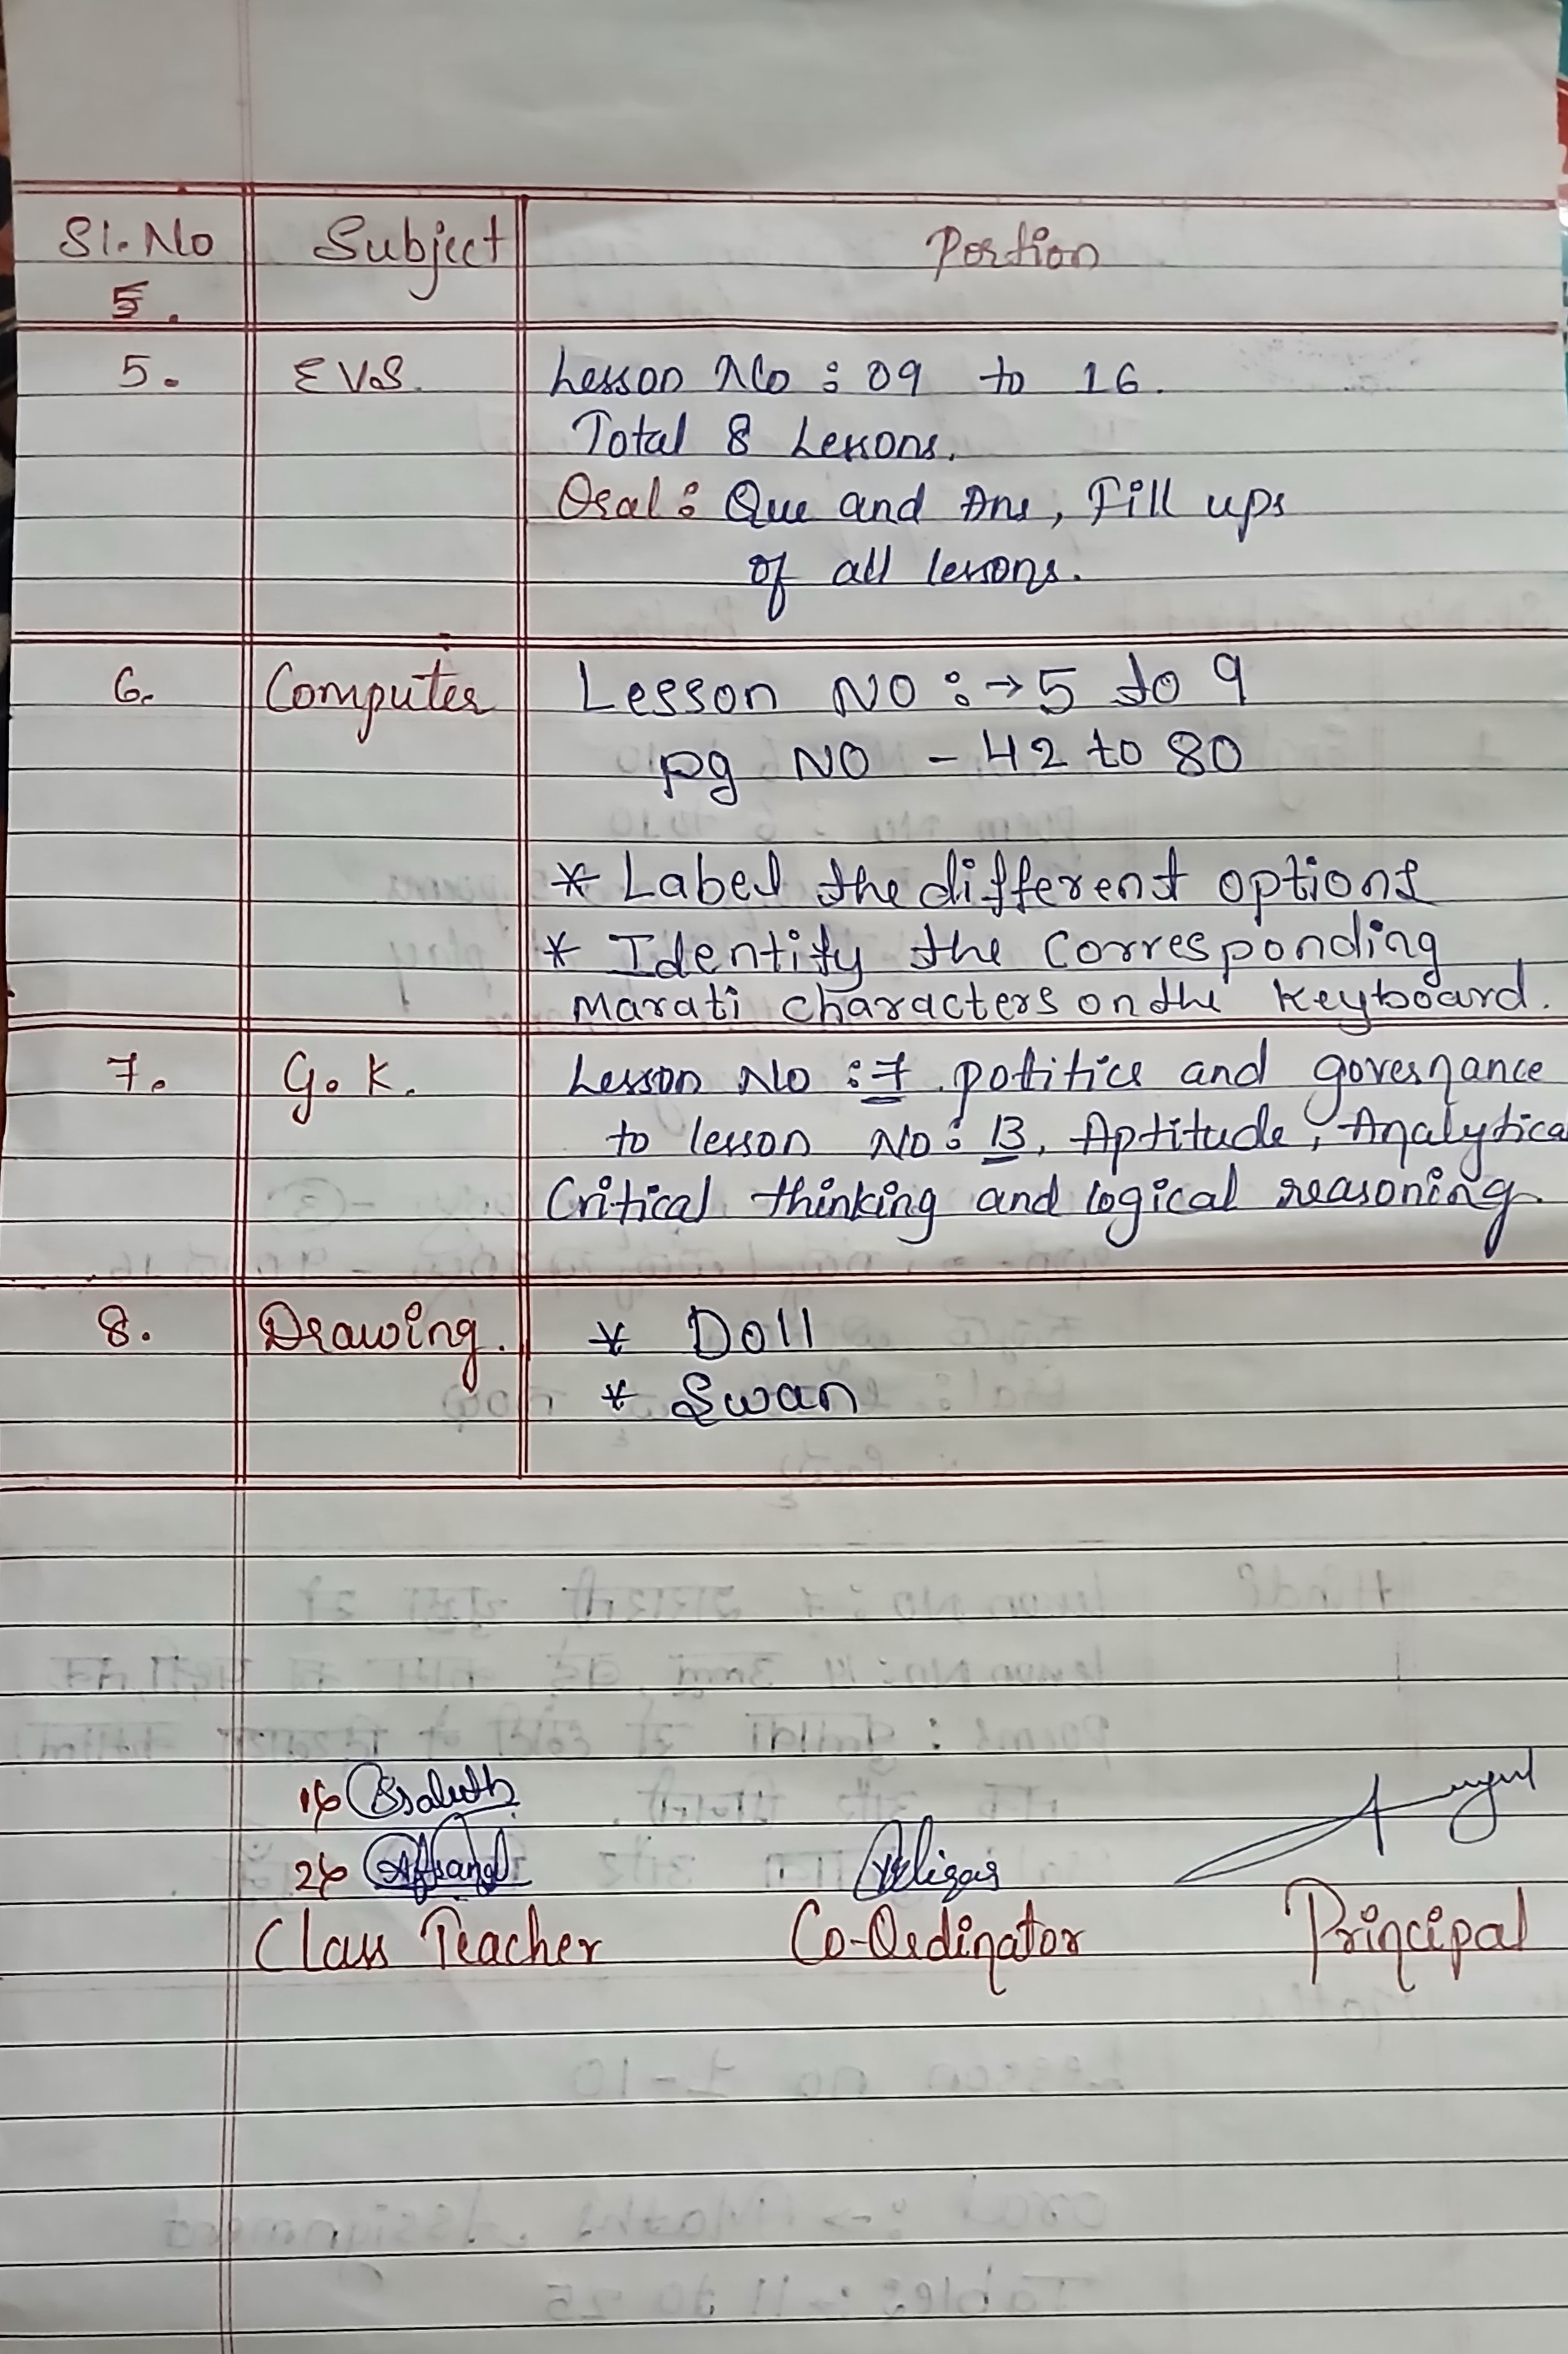 Sl. No Subject Portion
5.
5. EVS. Lesson No : 09 to 16.
Total 8 Lessons.
Oral : Que and Ans, Fill ups
of all lessons.
6. Computer Lesson NO :→ 5 to 9
pg NO - 42 to 80
* Label the different options
* Identify the corresponding
Marati characters on the keyboard.
7. G.K. Lesson No : 7 politics and governance
to lesson No : 13, Aptitude, Analytical
Critical thinking and logical reasoning
8. Drawing. * Doll
* Swan
1)
2)
Class Teacher Co-Ordinator Principal